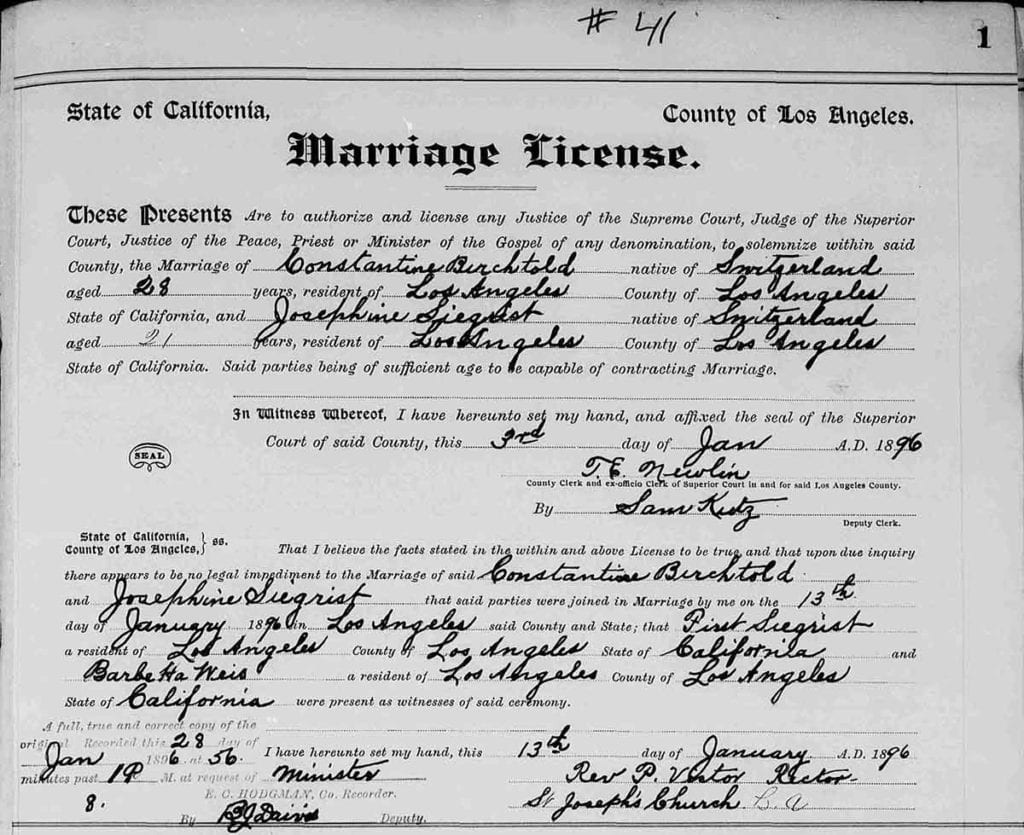 # 41
1
State of California, County of Los Angeles.
Marriage License.
These Presents Are to authorize and license any Justice of the Supreme Court, Judge of the Superior
Court, Justice of the Peace, Priest or Minister of the Gospel of any denomination, to solemnize within said
County, the Marriage of Constantine Berchtold native of Switzerland
aged 28 years, resident of Los Angeles County of Los Angeles
State of California, and Josephine Siegrist native of Switzerland
aged 21 years, resident of Los Angeles County of Los Angeles
State of California. Said parties being of sufficient age to be capable of contracting Marriage.
In Witness Whereof, I have hereunto set my hand, and affixed the seal of the Superior
Court of said County, this 3rd day of Jan A.D. 1896
SEAL
T. E. Newlin
County Clerk and ex-officio Clerk of Superior Court in and for said Los Angeles County.
By Sam Kutz
Deputy Clerk.
State of California,
County of Los Angeles, } ss.
That I believe the facts stated in the within and above License to be true, and that upon due inquiry
there appears to be no legal impediment to the Marriage of said Constantine Berchtold
and Josephine Siegrist that said parties were joined in Marriage by me on the 13th
day of January 1896 in Los Angeles said County and State; that First Siegrist
a resident of Los Angeles County of Los Angeles State of California and
Barbe Ha Weis a resident of Los Angeles County of Los Angeles
State of California were present as witnesses of said ceremony.
A full, true and correct copy of the
original Recorded this 28 day of
Jan 1896 at 56
minutes past 1 P M. at request of
Minister
8. E. C. HODGMAN, Co. Recorder.
By Deputy.
I have hereunto set my hand, this 13th day of January A.D. 1896
Rev P. Victor Rector
St Joseph's Church L. A